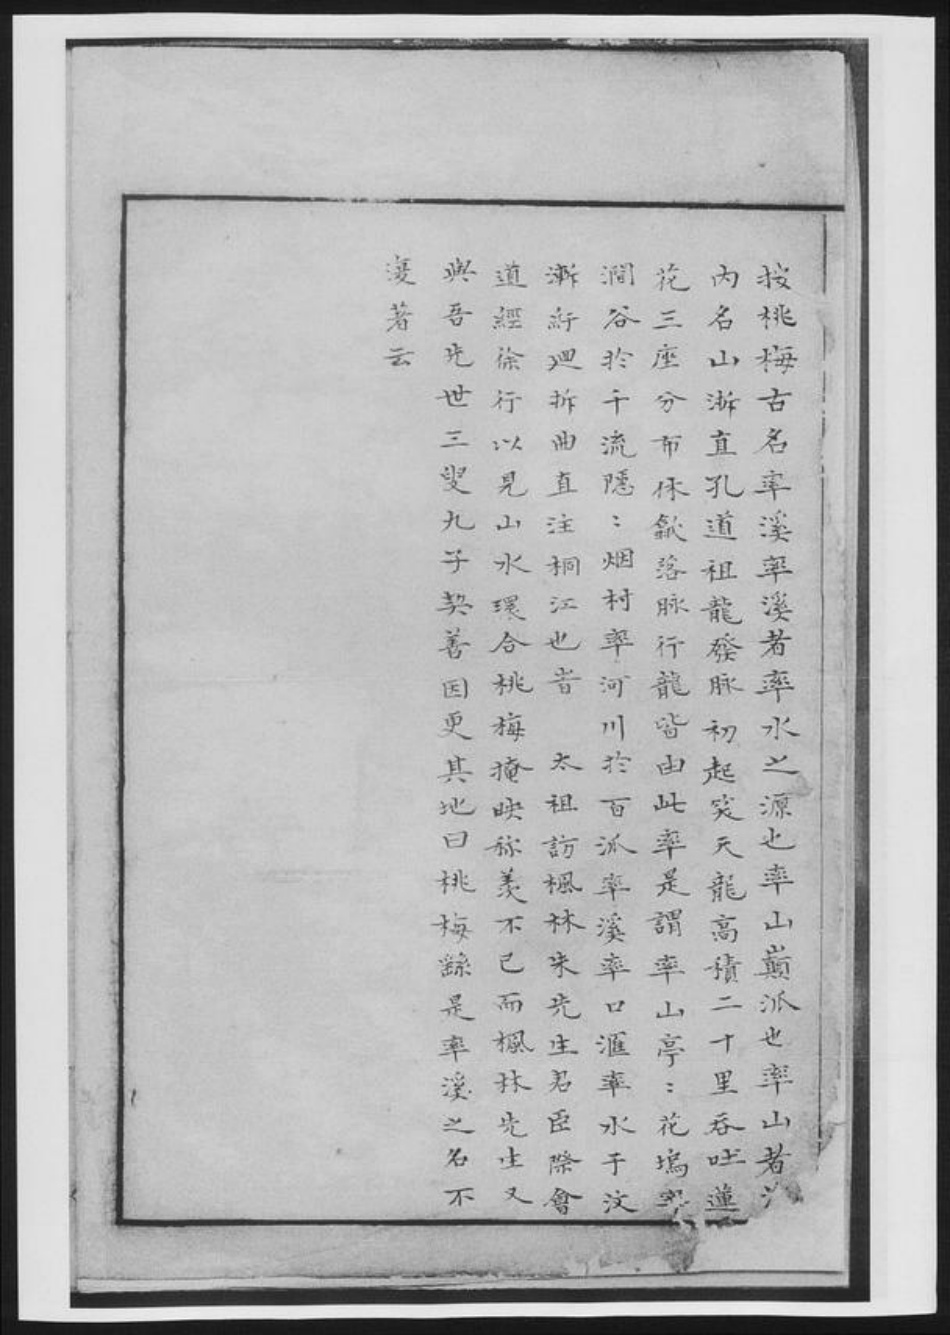 按桃梅古名率溪率溪者率水之源也率山巔派也率山者
內名山漸直孔道祖龍發脉初起突天龍高積二十里吞吐蓮
花三座分布休歙落脉行龍皆由此率是謂率山亭〻花塢率
澗谷於千流隱〻烟村率河川於百派率溪率口滙率水于汶
漸紆廻拆曲直注桐江也昔　太祖訪楓林朱先生君臣際會
道經徐行以見山水環合桃梅掩映稱羨不已而楓林先生又
與吾先世三叟九子契善因更其地曰桃梅繇是率溪之名不
復著云